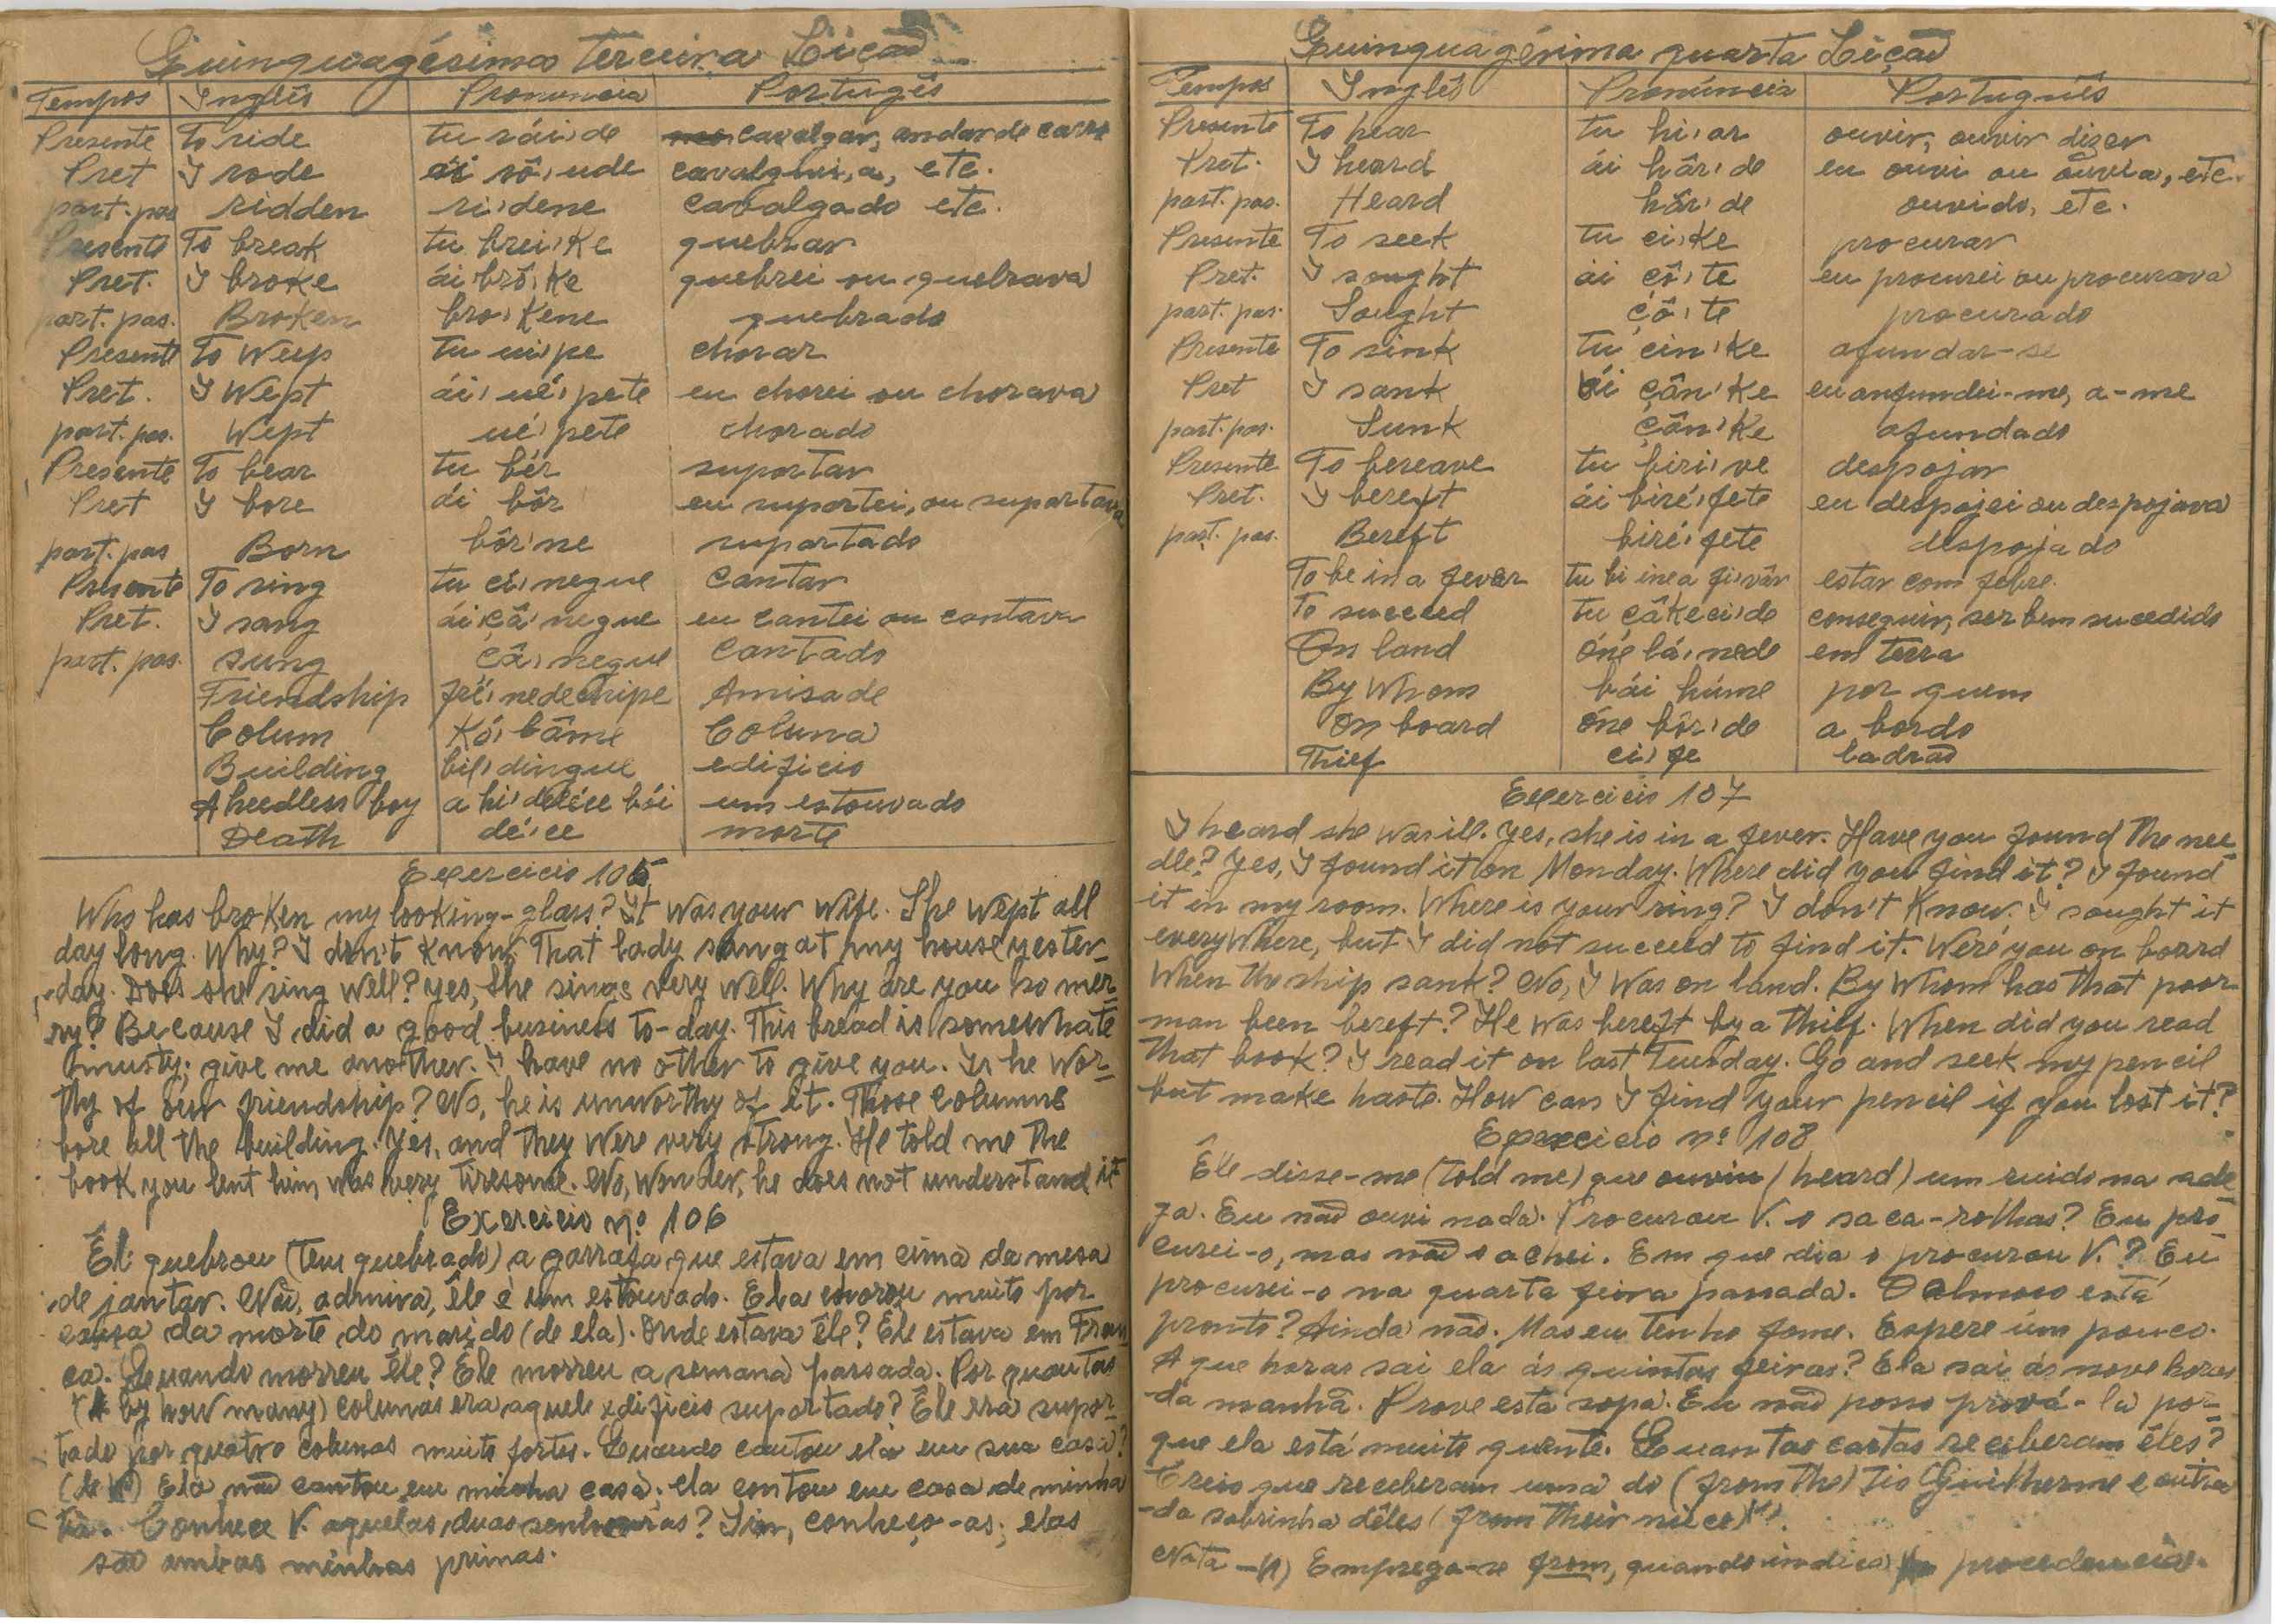 Quinquagésima terceira Lição
Tempos Inglês Pronuncia Portugês
Presente To ride tu rái,de cavalgar, andar de carro
Pret I rode ái rô,ude cavalguei, a, etc.
part. pas ridden ri,dene cavalgado etc.
Presente To break tu brei,Ke quebrar
Pret. I broke ái brô,Ke quebrei ou quebrava
part. pas. Broken bro,Kene quebrado
Presente To Weep tu ui,pe chorar
Pret. I Wept ái, ué,pete eu chorei ou chorava
part. pas. Wept ué,pete chorado
Presente To bear tu bér suportar
Pret I bore ái bôr eu suportei, ou suportava
part. pas Born bôr,ne suportado
Presente To sing tu ci,negue cantar
Pret. I sang ái çâ,negue eu cantei ou cantava
part. pas. sung çâ,negue cantado
Friendship fré,nedechipe Amisade
Colum Kó,lâme Coluna
Building bil,dingue edificio
A heedless boy a hi,deléce bói um estouvado
Death dé,ce morte
Exercicio 105
Who has broken my looking-glass? It was your wife. She wept all
day long. Why? I don't know. That lady sang at my house yester-
day. Does she sing well? yes, she sings very well. Why are you so mer-
ry? Because I did a good business to-day. This bread is somewhate
musty; give me another. I have no other to give you. Is he wor-
thy of our friendship? No, he is unworthy of it. Those columns
bore all the building. Yes, and they were very strong. He told me the
book you lent him was very tiresome. No, wonder, he does not understand it
Exercicio nº 106
Êle quebrou (tem quebrado) a garrafa que estava em cima da mesa
de jantar. Não, admira, êle é um estouvado. Ela chorou muito por
causa da morte do marido (de ela). Onde estava êle? Êle estava em Fran-
ça. Quando morreu êle? Êle morreu a semana passada. Por quantas
(by how many) colunas era aquele edificio suportado? Êle era supor-
tado por quatro colunas muito fortes. Quando cantou ela em sua casa?
(de V.) Ela não cantou em minha casa; ela contou em casa de minha
tia. Conhece V. aquelas duas senhoras? Sim, conheço-as; elas
são ambas minhas primas.
Quinquagésima quarta Lição
Tempos Inglês Pronúncia Português
Presente To hear tu hi,ar ouvir, ouvir dizer
Pret. I heard ái hâr,de eu ouvi ou ouvia, etc.
part. pas. Heard hâr,de ouvido, etc.
Presente To seek tu ci,Ke procurar
Pret. I sought ái çô,te eu procurei ou procurava
part. pas. Sought çô,te procurado
Presente To sink tu cin,Ke afundar-se
Pret I sank ái çân,Ke eu anfundei-me, a-me
part. pas. Sunk çân,Ke afundado
Presente To bereave tu biri,ve despojar
Pret. I bereft ái biré,fete eu despojei ou despojava
part. pas. Bereft biré,fete despojado
To be in a fever tu bi ine a fi,vâr estar com febre.
To succeed tu çâkeci,de conseguir, ser bem sucedido
On land óne lá,nede em terra
By Whom bái húme por quem
On board óne bôr,de a bordo
Thief ci,fe ladrão
Exercicio 107
I heard she was ill. Yes, she is in a fever. Have you found the nee-
dle? Yes, I found it on Monday. Where did you find it? I found
it in my room. Where is your ring? I don't Know. I sought it
everywhere, but I did not succeed to find it. Were you on board
When the ship sank? No, I was on land. By Whom has that poor
man been bereft? He was bereft by a thief. When did you read
that book? I read it on last Tuesday. Go and seek my pencil
but make haste. How can I find your pencil if you lost it?
Exercicio nº 108
Êle disse-me (told me) que ouviu (heard) um ruido na ade-
ga. Eu não ouvi nada. Procurou V. o saca-rolhas? Eu pro-
curei-o, mas não o achei. Em que dia o procurou V.? Eu
procurei-o na quarta feira passada. O almoço está
pronto? Ainda não. Mas eu tenho fome. Espere úm pouco.
A que horas sai ela ás quintas feiras? Ela sai ás nove horas
da manhã. Prove esta sopa. Eu não posso prová-la por-
que ela está muito quente. Quantas cartas receberam êles?
Creio que receberam uma do (from the) tio Guilherme e outra
da sobrinha dêles (from their niece)(1).
Nota -(1) Emprega-se from, quando indica procedencia.